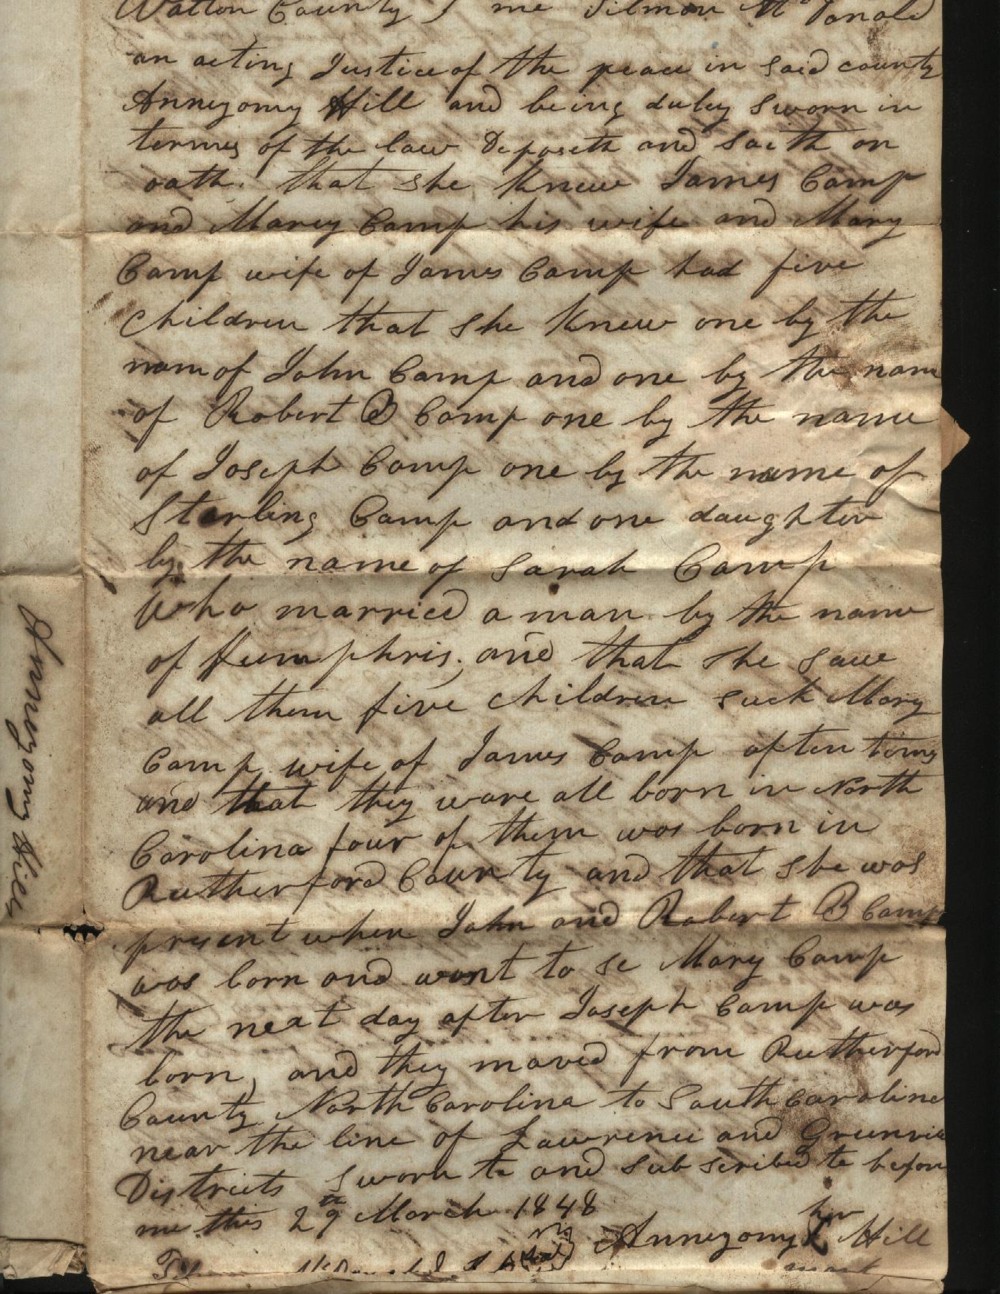 Walton County } me Tilmon McDonald
an acting Justice of the peace in said county
Anneyomy Hill and being duley sworn in
terms of the law Deposeth and saith on
oath. that she knew James Camp
and Marey Camp his wife and Mary
Camp wife of James Camp had five
children that she knew one by the
nam of John Camp and one by the nam
of Robert B Camp one by the name
of Joseph Camp one by the name of
Starling Camp and one daughter
by the name of Sarah Camp
Who married a man by the name
of Humphris, and that she saw
all them five children suck Mary
Camp wife of James Camp often times
and that they ware all born in North
Carolina four of them was born in
Rutherford County and that she was
present when John and Robert B Camp
was born and want to se Mary Camp
the next day after Joseph Camp was
born, and they moved from Rutherford
County North Carolina to South Carolina
near the line of Lawrence and Grenvile
Districts Sworn to and subscribed to before
me this 29th March 1848
her
Anneyomy X Hill
mark
McDonald J P
Anneyomy Hill